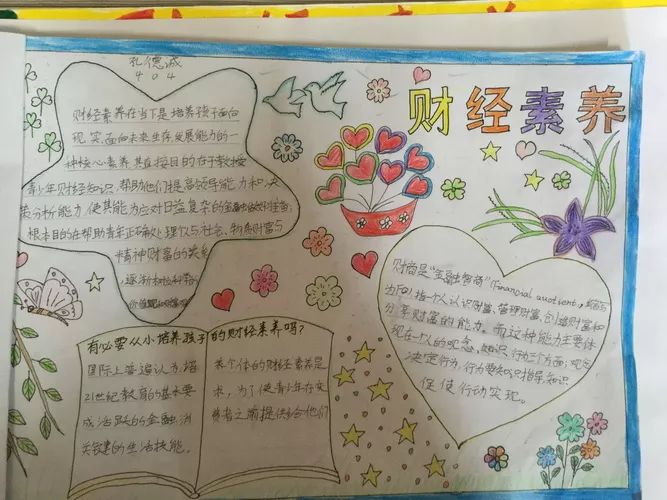 孔德诚
404
财经素养
财经素养在当下是培养孩子面向
现实,面向未来生存,发展能力的一
种核心素养,其直接目的在于教授
青少年财经知识,帮助他们提高领导能力和决
策分析能力,使其能力应对日益复杂的金融
根本目的在帮助青年正确处理仪与社会、物质财富与
精神财富的关系
逐渐树立科学的
财商是"金融智商"(Financial quotient,
为FQ),指个人认识财富,管理财富,创造财富和
分享财富的能力。而这种能力主要体
现在一个人的观念,知识,行为三个方面;观念
决定行为,行为要知识指导,知识
促使行动实现。
有必要从小培养孩子的财经素养吗?
国际上普遍认为,培
21世纪教育的基本要
成活跃的金融消
关键的生活技能。
养个体的财经素养是
求,为了使青少年在变
费者之前提供给他们